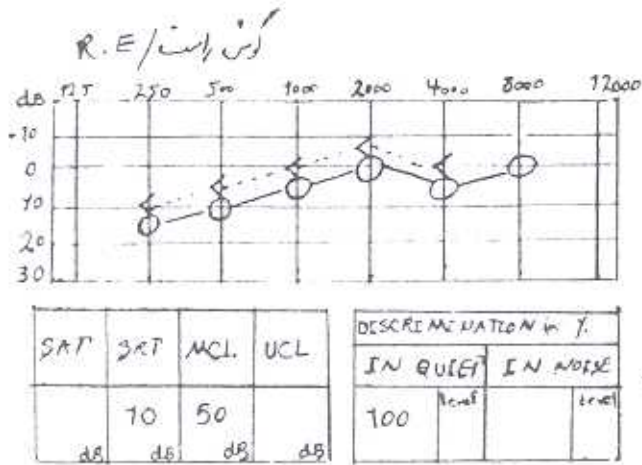 R.E/گوش راست
dB 125 250 500 1000 2000 4000 8000 12000
-10
0
10
20
30
SAT SRT MCL UCL
10 50
dB dB dB dB
DISCRIMINATION in %
IN QUIET IN NOISE
100 level level